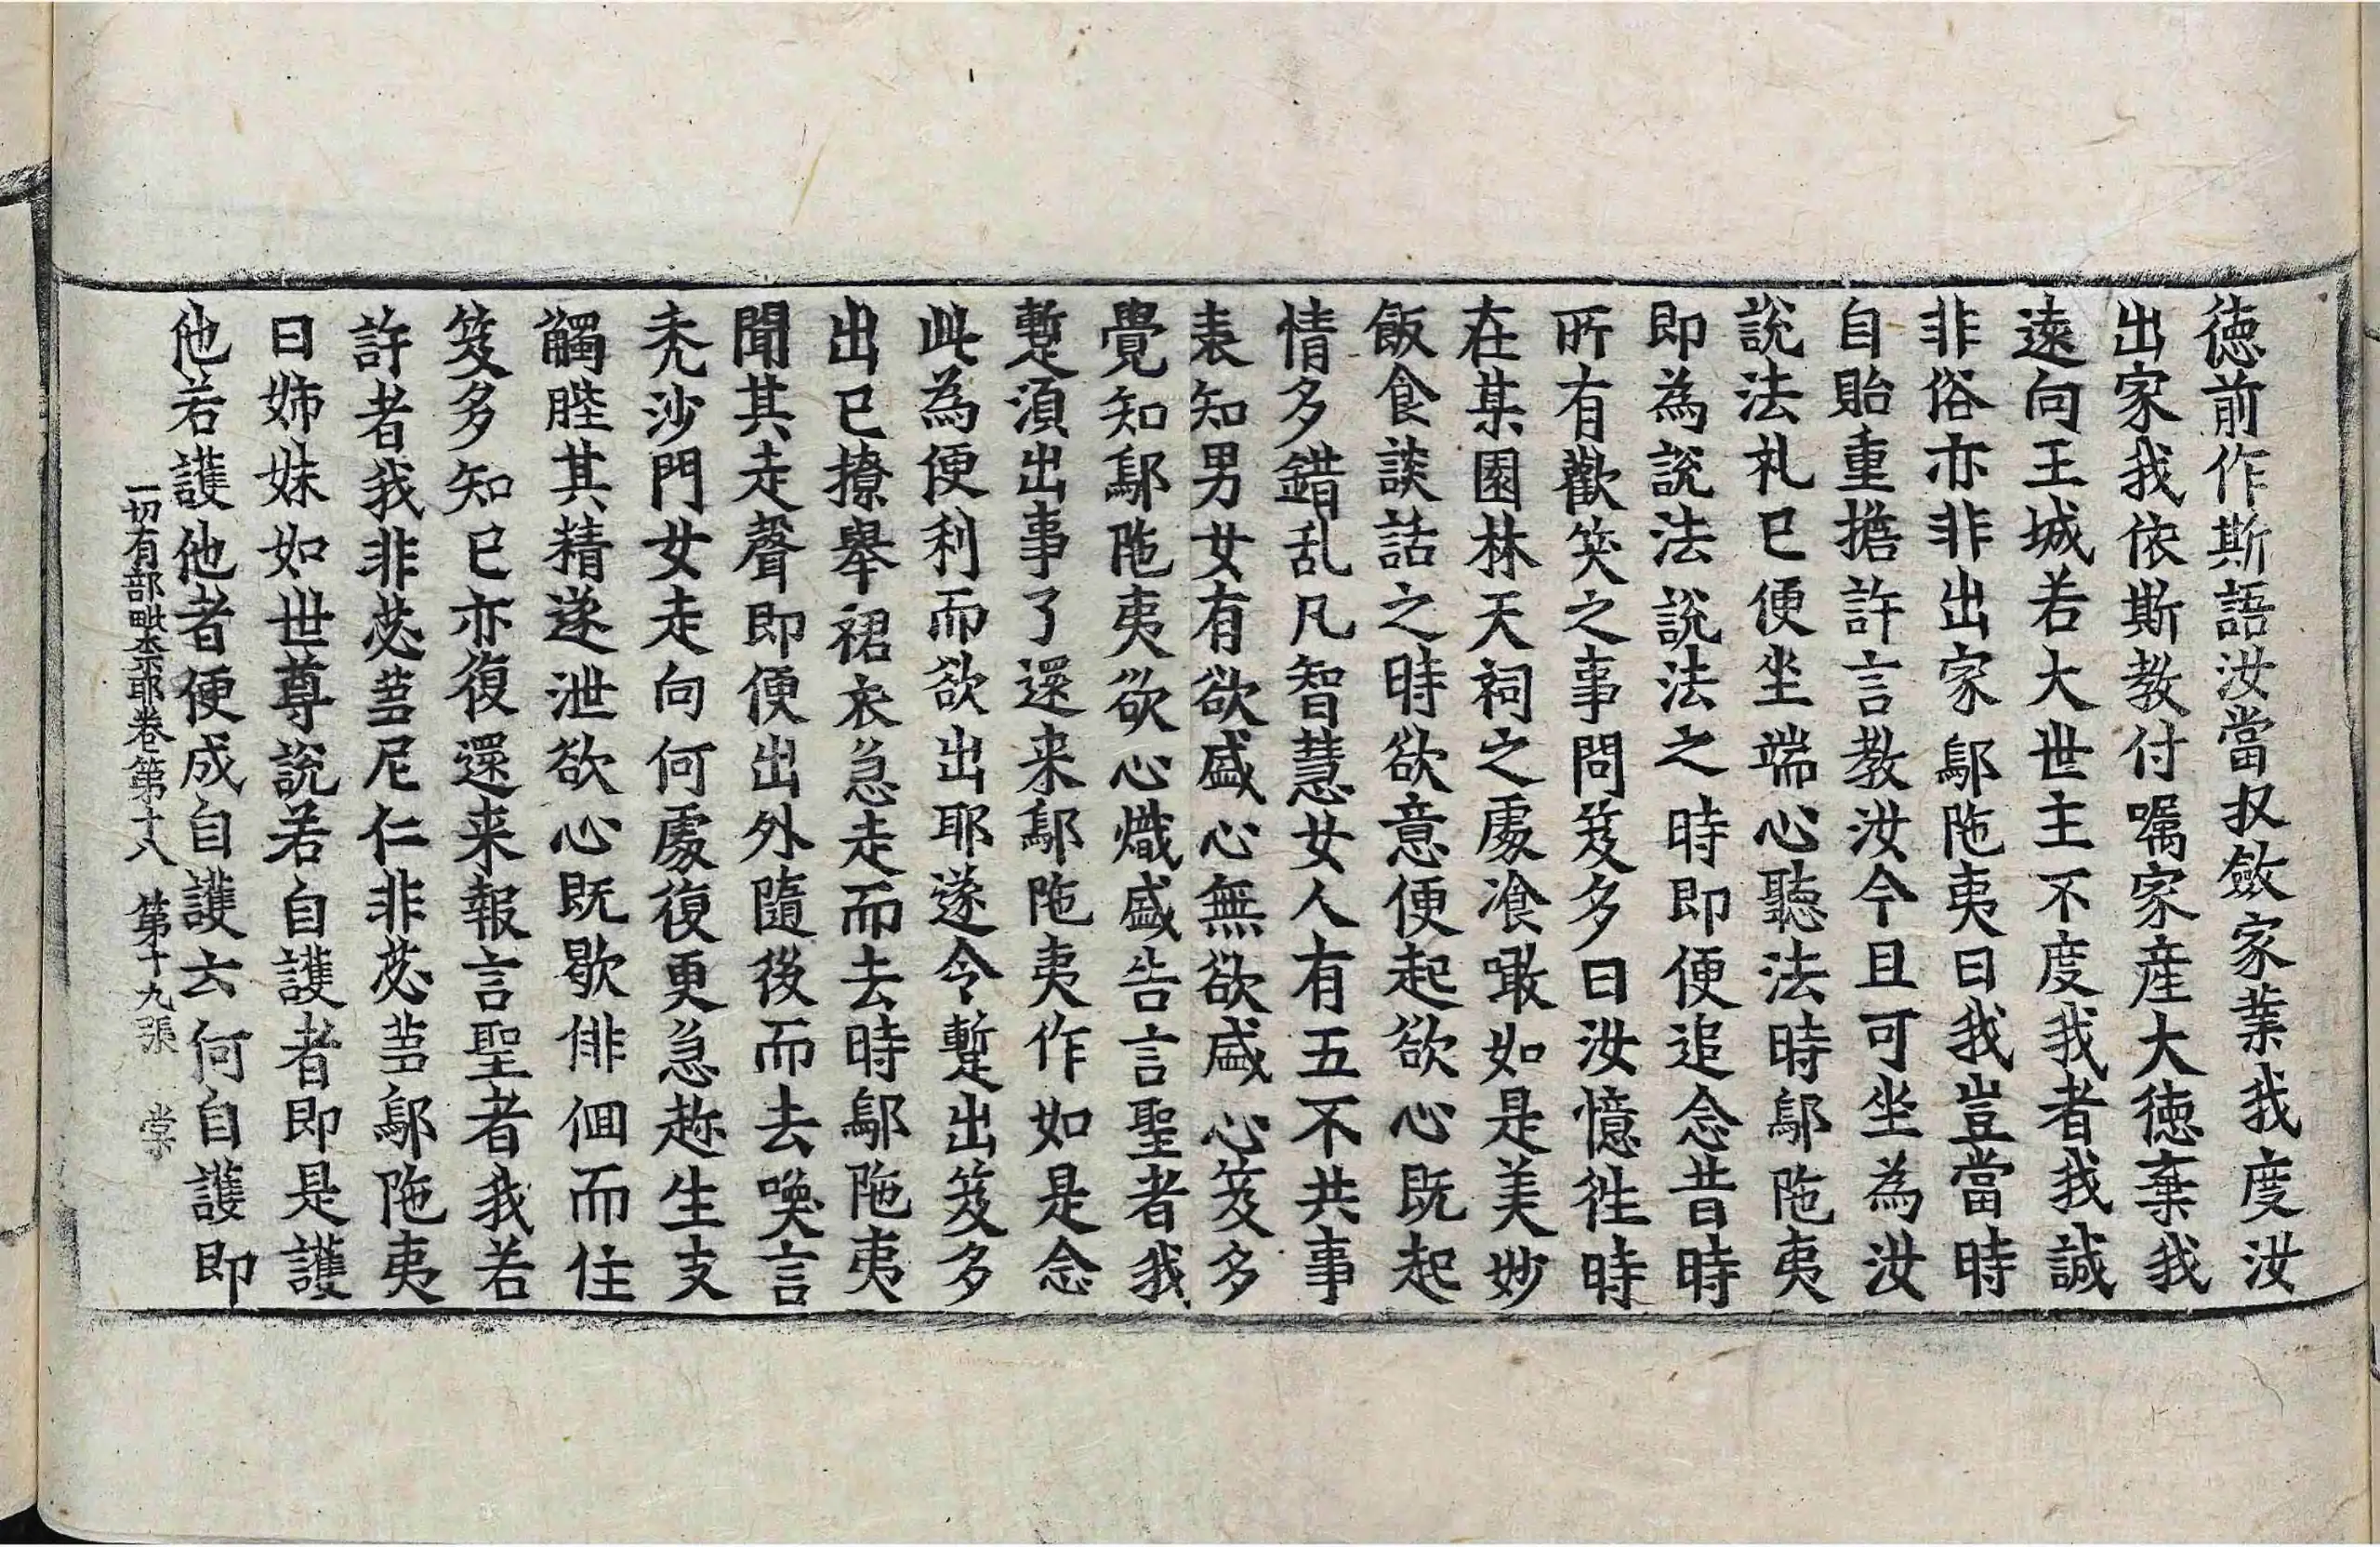 德前作斯語汝當収斂家業我度汝
出家我依斯教付嘱家産大德棄我
遠向王城若大世主不度我者我誠
非俗亦非出家鄔陁夷曰我豈當時
自貽重擔許言教汝今且可坐為汝
說法礼已便坐端心聽法時鄔陁夷
即為說法說法之時即便追念昔時
所有歡笑之事問笈多曰汝憶往時
在某園林天祠之處飡噉如是美妙
飯食談話之時欲意便起欲心既起
情多錯乱凡智慧女人有五不共事
表知男女有欲盛心無欲盛心笈多
覺知鄔陁夷欲心熾盛告言聖者我
蹔湏出事了還来鄔陁夷作如是念
此為便利而欲出耶遂令蹔出笈多
出已撩舉裙衣急走而去時鄔陁夷
聞其走聲即便出外隨後而去喚言
禿沙門女走向何處復更急趂生支
觸䏶其精遂泄欲心既歇俳佪而住
笈多知已亦復還来報言聖者我若
許者我非苾蒭尼仁非苾蒭鄔陁夷
曰姊妹如世尊說若自護者即是護
他若護他者便成自護云何自護即
一切有部毗奈耶卷第十八 第十九張 棠